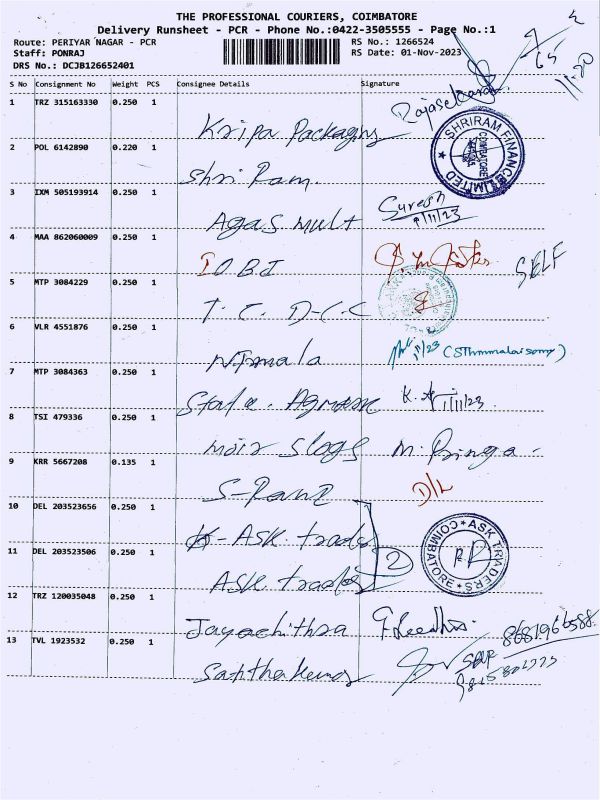 THE PROFESSIONAL COURIERS, COIMBATORE
Delivery Runsheet - PCR - Phone No.:0422-3505555 - Page No.:1
Route: PERIYAR NAGAR - PCR RS No.: 1266524
Staff: PONRAJ RS Date: 01-Nov-2023
DRS No.: DCJB126652401
65
11:20
S No Consignment No Weight PCS Consignee Details Signature
1 TRZ 315163330 0.250 1 Kripa Packaging
SHRIRAM FINANCE LIMITED COIMBATORE
2 POL 6142890 0.220 1 Shri Ram.
3 IXM 505193914 0.250 1 Agas Mult Suresh
1/11/23
4 MAA 862060009 0.250 1 IOBI SELF
5 MTP 3084229 0.250 1 T. C. D-C-C
6 VLR 4551876 0.250 1 Nirmala
7 MTP 3084363 0.250 1 State. K. 1/11/23.
8 TSI 479336 0.250 1 M. Pringa-
9 KRR 5667208 0.135 1 D/L
10 DEL 203523656 0.250 1 ASK traders
2
ASK TRADERS COIMBATORE
11 DEL 203523506 0.250 1 ASK traders
12 TRZ 120035048 0.250 1 Jayachithra
13 TVL 1923532 0.250 1 Santhakumar